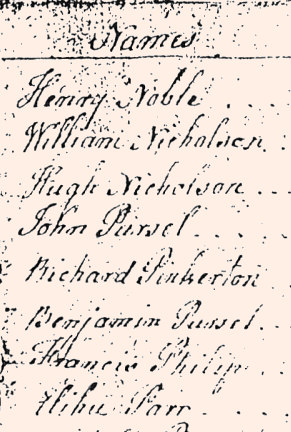 Names
Henry Noble
William Nicholson
Hugh Nicholson
John Pursel
Richard Pinkerton
Benjamin Pursel
Francis Philip
Elihu Parr